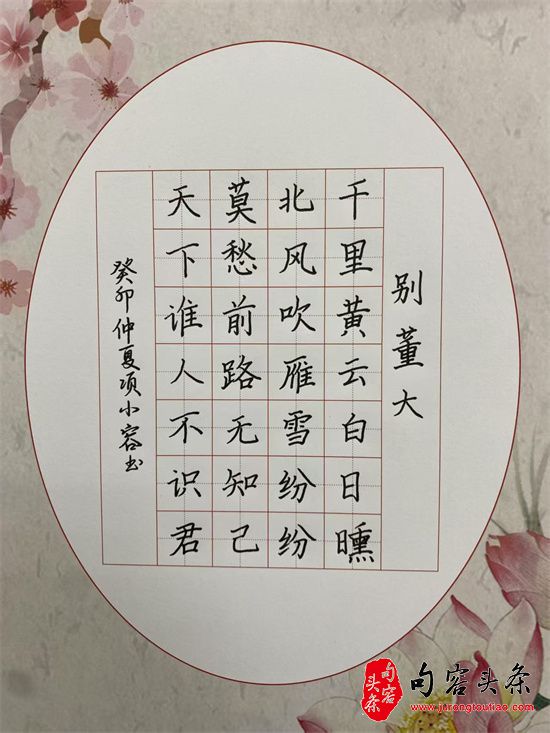 别董大
千里黄云白日曛
北风吹雁雪纷纷
莫愁前路无知己
天下谁人不识君
癸卯仲夏项小容书
句容头条
句容头条
www.jurongtoutiao.com